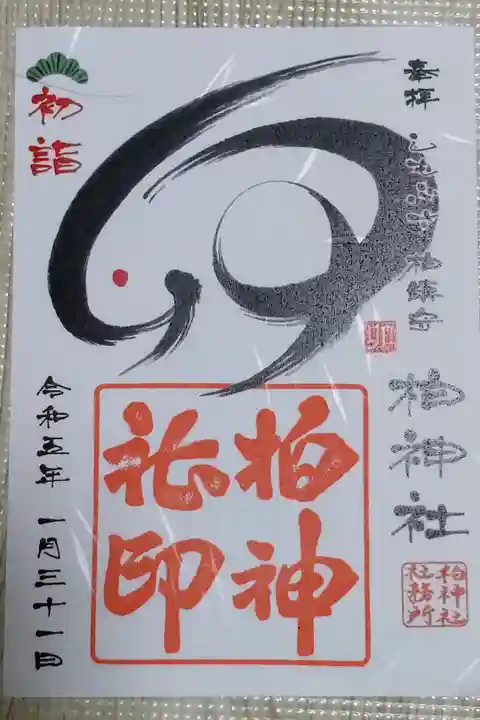 奉拝
札鎮守
卯
柏神社
柏神社
社務所
初詣
柏神
社印
令和五年 一月三十一日